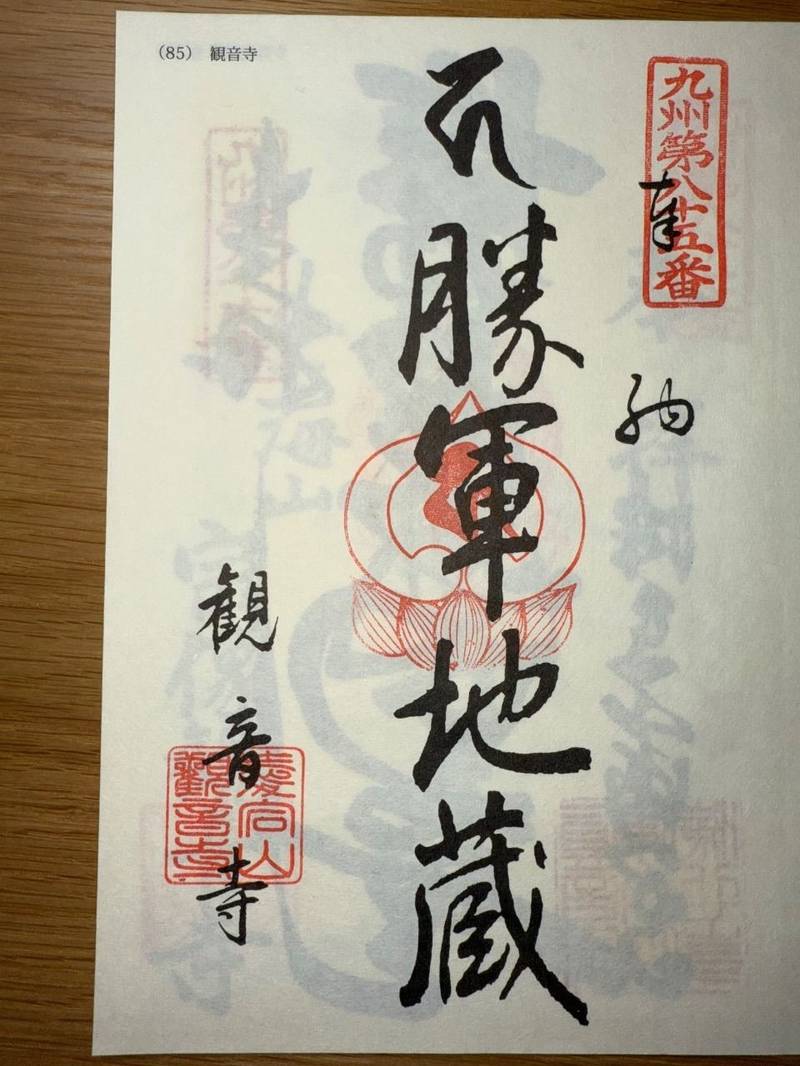 (85) 観音寺
九州第八十五番
奉納
勝軍地蔵
観音寺
向山
觀音寺